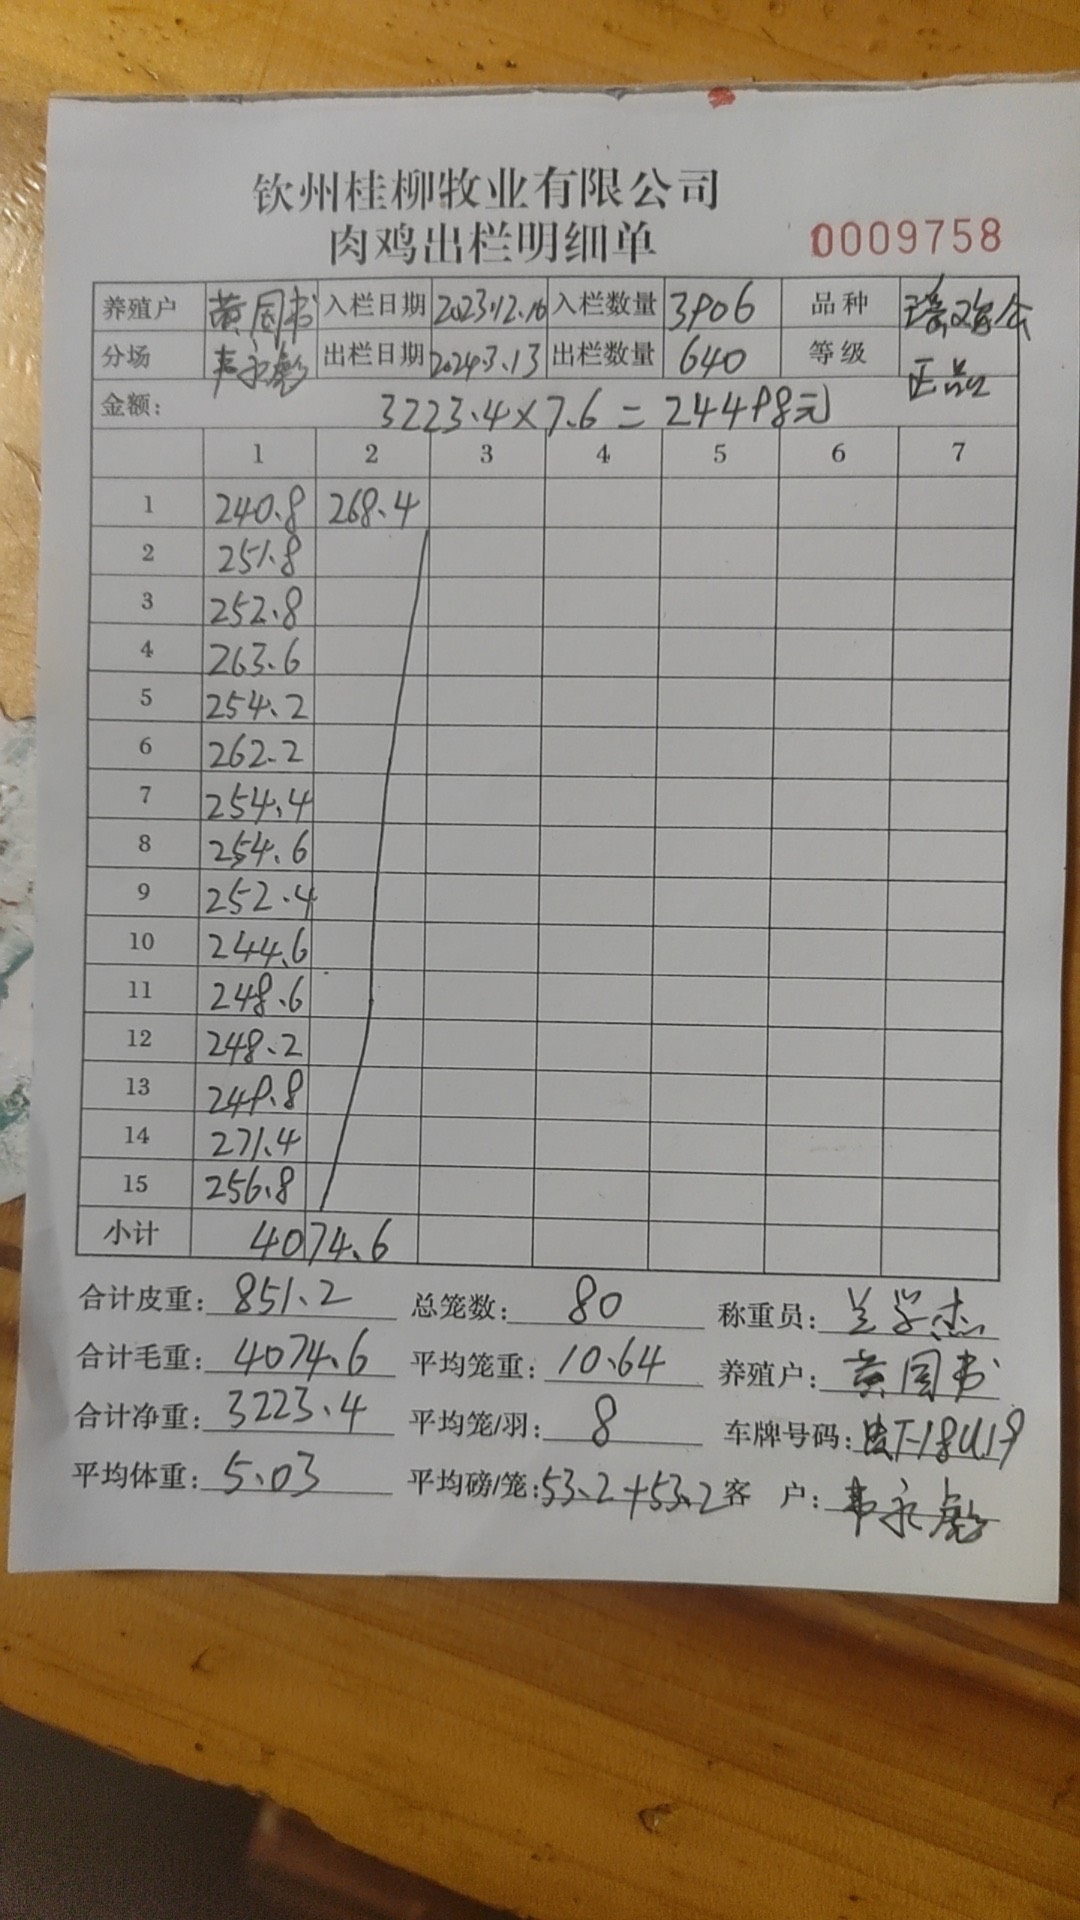 钦州桂柳牧业有限公司
肉鸡出栏明细单
0009758
养殖户 黄国书 入栏日期 2023.12.16 入栏数量 3906 品种 瑶鸡公
分场 韦永彪 出栏日期 2024.3.13 出栏数量 640 等级 正品
金额: 3223.4×7.6=24498元
1 2 3 4 5 6 7
1 240.8 268.4
2 251.8
3 252.8
4 263.6
5 254.2
6 262.2
7 254.4
8 254.6
9 252.4
10 244.6
11 248.6
12 248.2
13 249.8
14 271.4
15 256.8
小计 4074.6
合计皮重: 851.2 总笼数: 80 称重员: 兰学杰
合计毛重: 4074.6 平均笼重: 10.64 养殖户: 黄国书
合计净重: 3223.4 平均笼/羽: 8 车牌号码:
平均体重: 5.03 平均磅/笼: 53.2+53.2 客 户: 韦永彪